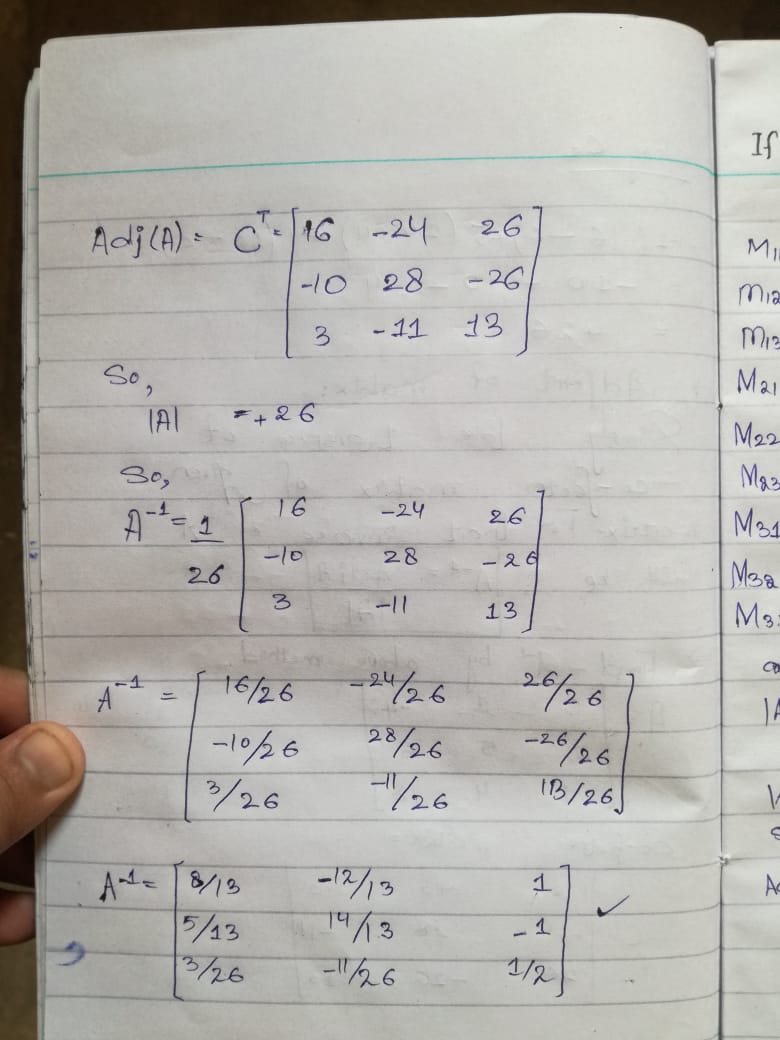 Adj(A) = C^T = [16 -24 26
-10 28 -26
3 -11 13]
So,
|A| = +26
So,
A^-1 = 1/26 [16 -24 26
-10 28 -26
3 -11 13]
A^-1 = [16/26 -24/26 26/26
-10/26 28/26 -26/26
3/26 -11/26 13/26]
A^-1 = [8/13 -12/13 1
5/13 14/13 -1
3/26 -11/26 1/2] ✓
If
M11
M12
M13
M21
M22
M23
M31
M32
M3
co
|A